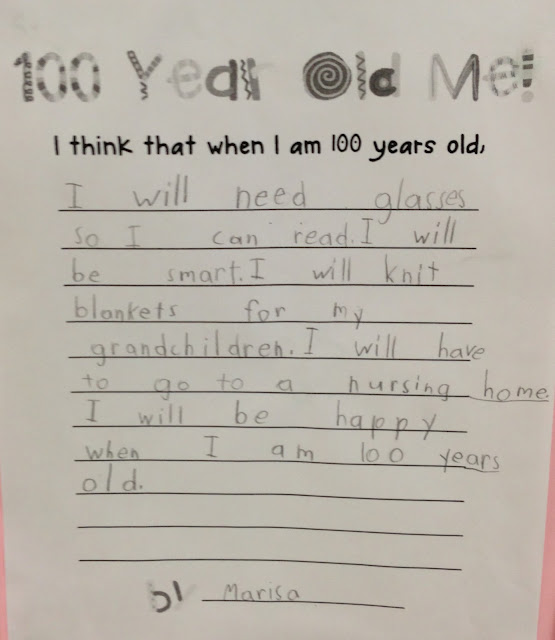 100 Year Old Me!
I think that when I am 100 years old,
I will need glasses
so I can read. I will
be smart. I will knit
blankets for my
grandchildren. I will have
to go to a nursing home.
I will be happy
when I am 100 years
old.
Marisa